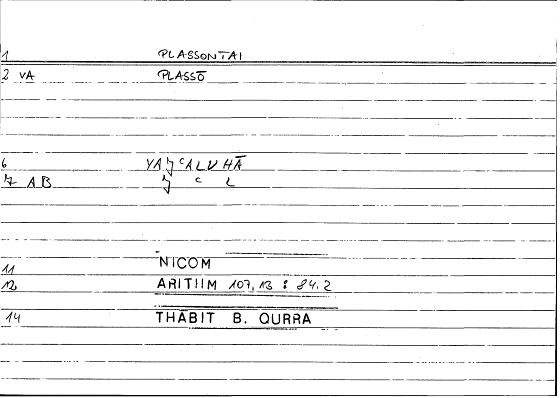 1 PLASSONTAI
2 VA PLASSŌ
6 YAǦʿALUHĀ
7 AB Ǧ ʿ L
11 NICOM
12 ARITIIM 107,13 : 84.2
14 THĀBIT B. QURRA